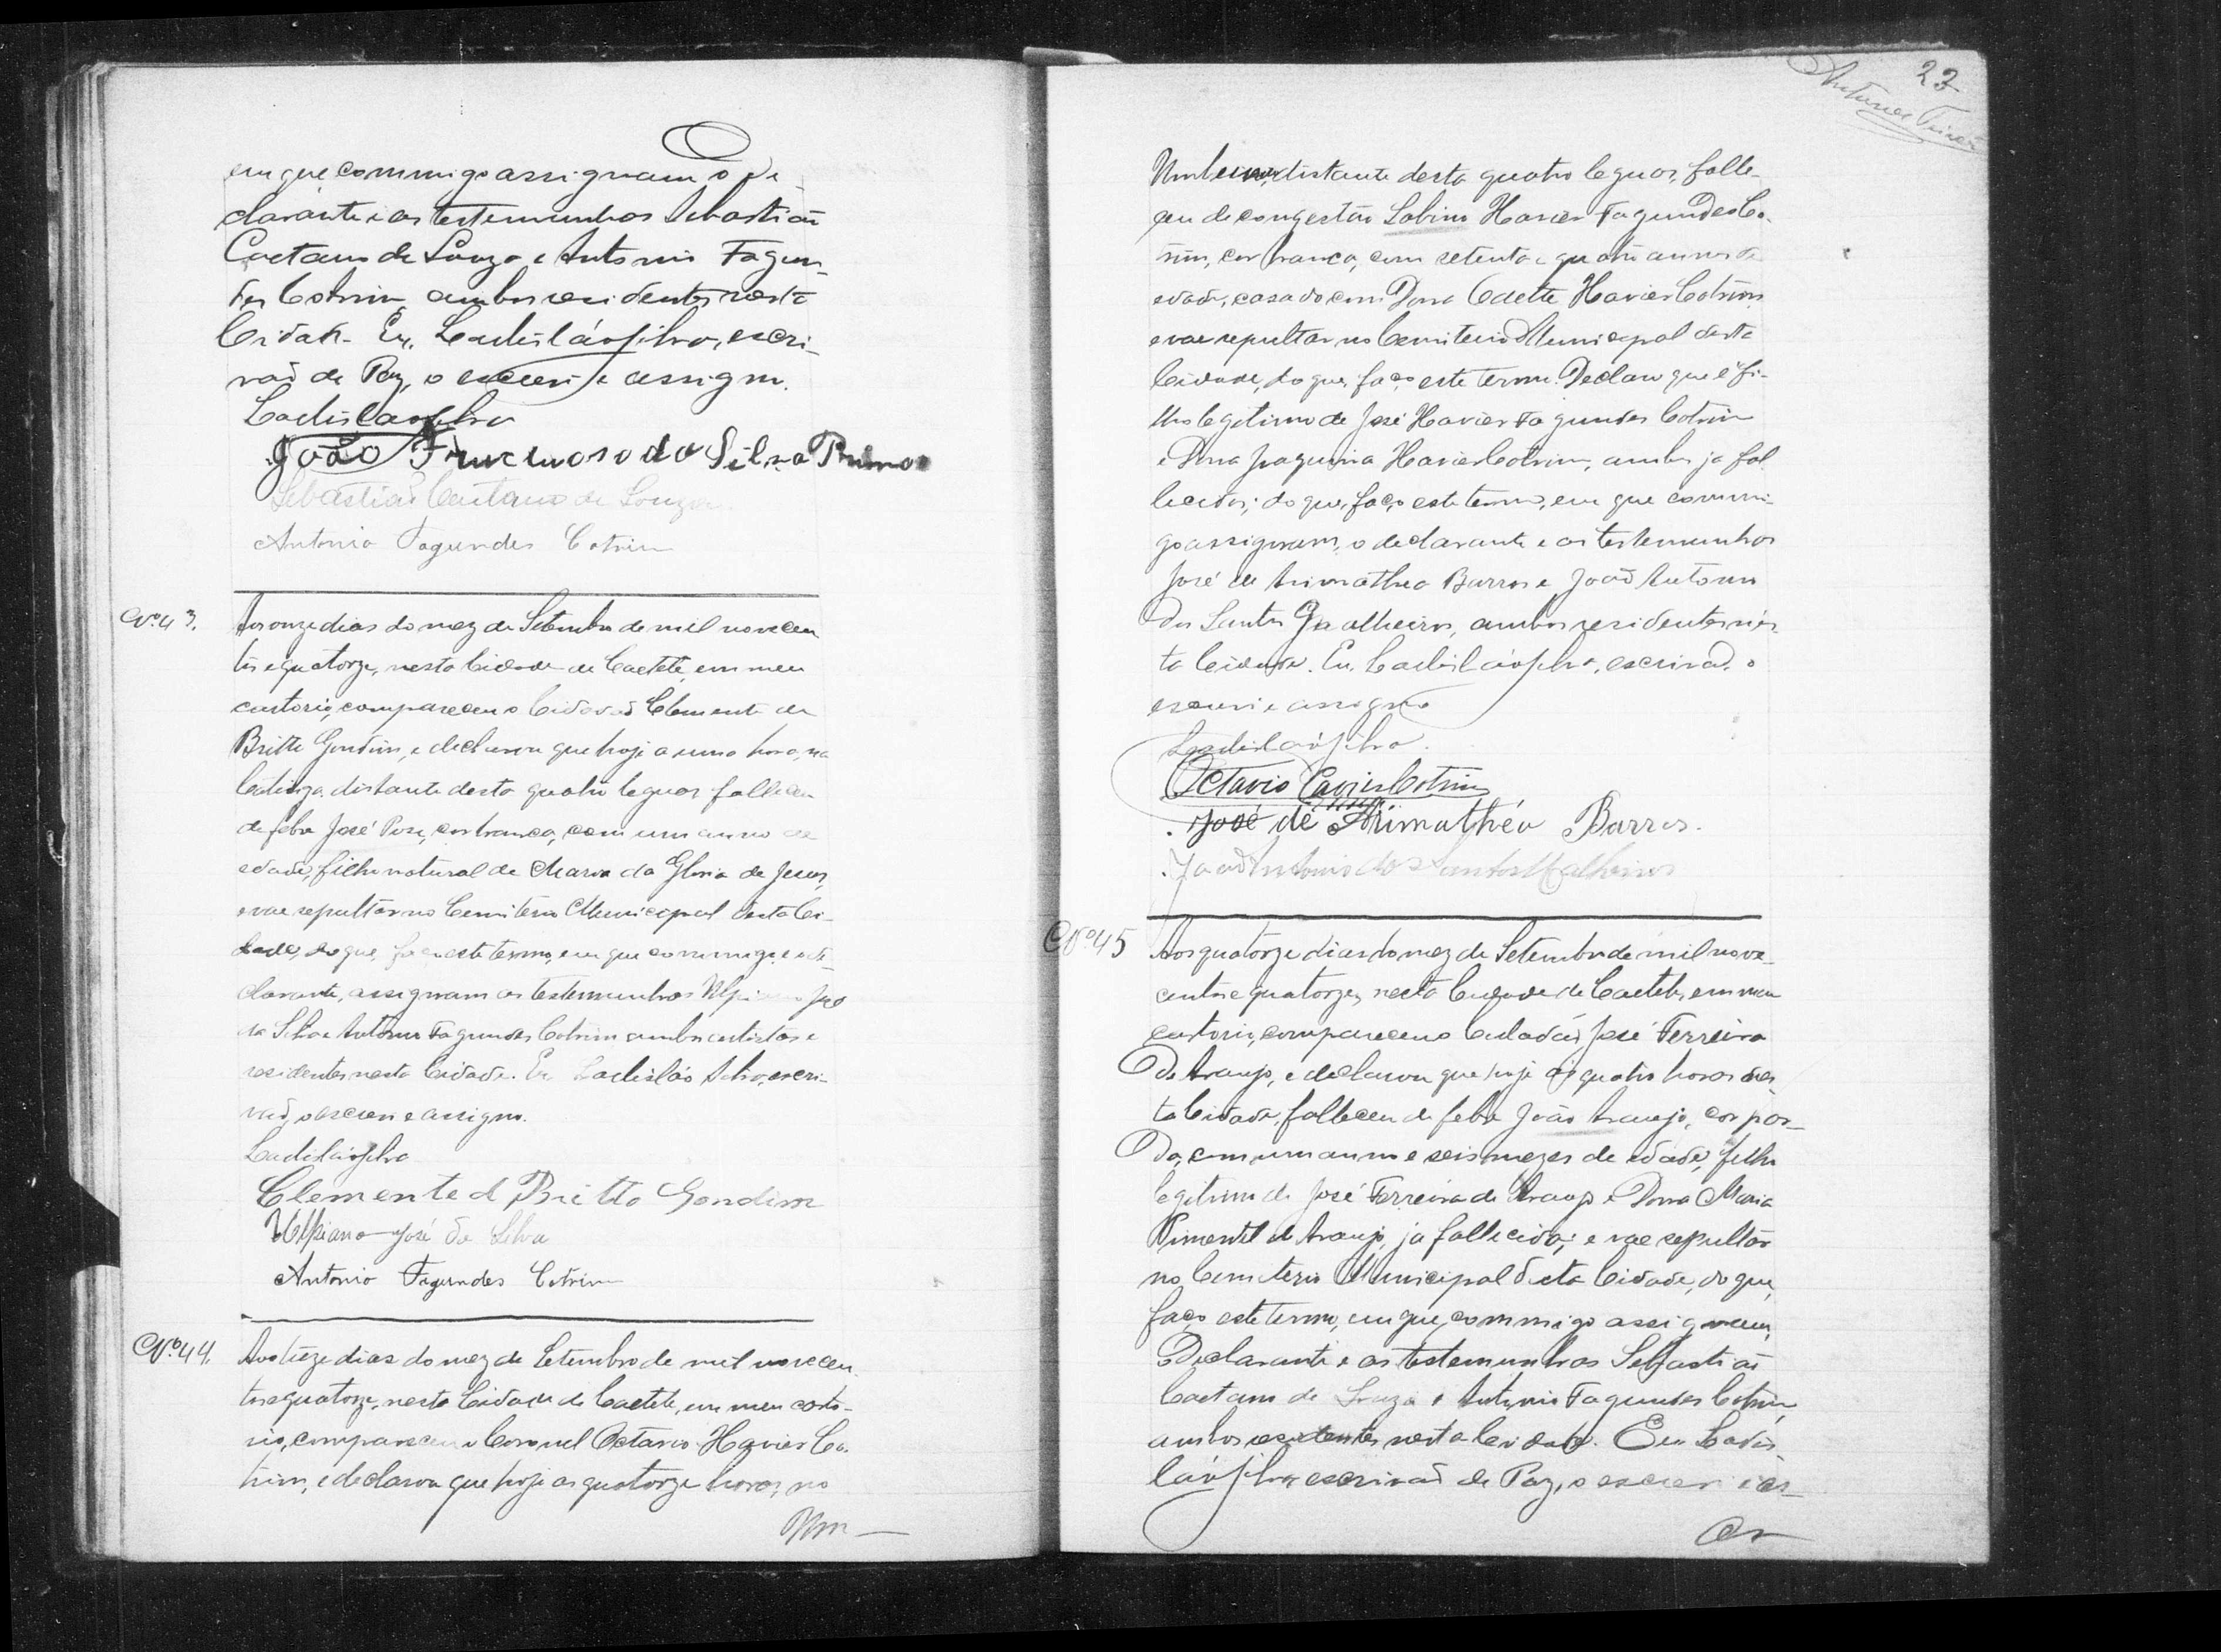 em que commigo assignam o de-
clarante e as testemunhas Sebastião
Caetano de Souza e Antonio Fagun-
des Cotrim, ambos residentes nesta
Cidade. Eu, Ladisláo Silva, escri-
vão de Paz, o escrevi e assigno.
Ladisláo Silva
João Fructuoso da Silva Primo
Sebastião Caetano de Souza
Antonio Fagundes Cotrim
Nº 43. Aos onze dias do mez de Setembro de mil novecen
tos e quatorze, nesta Cidade de Caeteté, em meu
cartorio, compareceu o Cidadão Clemente de
Britto Gondim, e declarou que hoje a uma hora, na
Catinga distante desta quatro leguas falleceu
de febre José, cor branca, com um anno de
edade, filho natural de Maria da Gloria de Jesus,
e vae sepultar no Cemiterio Municipal desta Ci-
dade, do que, faço este termo, em que commigo e o de-
clarante, assignam as testemunhas Ulpiano José
da Silva e Antonio Fagundes Cotrim ambos artistas e
residentes nesta Cidade. Eu Ladisláo Silva, escri-
vão, o escrevi e assigno.
Ladisláo Silva
Clemente d Britto Gondim
Ulpiano José da Silva
Antonio Fagundes Cotrim
Nº 44. Aos treze dias do mez de Setembro de mil novecen-
tos e quatorze, nesta Cidade de Caeteté, em meu carto-
rio, compareceu o Coronel Octavio Xavier Co-
trim, e declarou que hoje as quatorze horas, no
Um-
23
Antunes
distante desta quatro leguas, falle-
ceu de congestão Sabino Xavier Fagundes Co-
trim, cor branca, com setenta e quatro annos de
edade, casado com Dona Odette Xavier Cotrim
e vae sepultar no Cemiterio Municipal desta
Cidade, do que, faço este termo. Declaro que é fi-
lho legitimo de José Xavier Fagundes Cotrim
e Dona Joaquina Xavier Cotrim, ambos ja fal
lecidos; do que, faço este termo, em que commi-
go assignam, o declarante e as testemunhas
José de Arimathea Barros e João Antonio
dos Santos Malheiros, ambos residentes nes-
ta Cidade. Eu, Ladisláo Silva, escrivão, o
escrevi e assigno
Ladisláo Silva.
Octavio Xavier Cotrim
José de Arimathéa Barros.
João Antonio dos Santos Malheiros
Nº 45 Aos quatorze dias do mez de Setembro de mil nove-
centos e quatorze, nesta Cidade de Caeteté, em meu
cartorio, compareceu o Cidadão José Ferreira
de Araujo, e declarou que hoje ás quatro horas nes-
ta Cidade, falleceu de febre João Araujo, cor par-
da, com um anno e seis mezes de edade, filho
legitimo de José Ferreira de Araujo e Dona Maria
Pimentel de Araujo, ja fallecida; e vae sepultar
no Cemiterio Municipal desta Cidade, do que,
faço este termo, em que, commigo assignam,
o Declarante e as testemunhas Sebastião
Caetano de Souza e Antonio Fagundes Cotrim,
ambos residentes nesta Cidade. Eu Ladis-
láo Silva escrivão de Paz, o escrevi e as-
as-